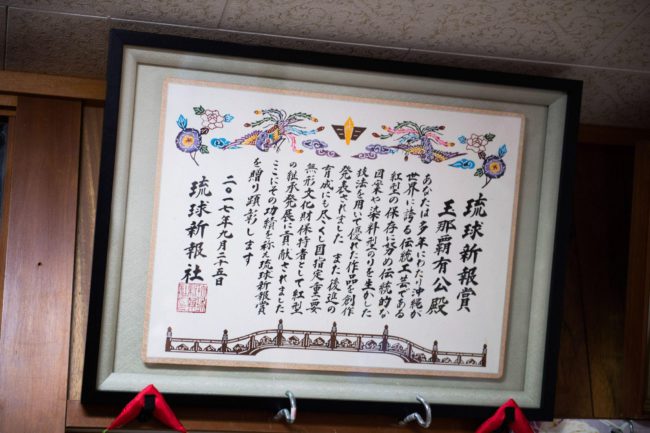 琉球新報賞
玉那覇有公殿
あなたは多年にわたり沖縄が
世界に誇る伝統工芸である
紅型の保存に努め伝統的な
図案や染料型のりを生かした
技法を用いて優れた作品を創作
発表されました また後進の
育成にも尽くし国指定重要
無形文化財保持者として紅型
の継承発展に貢献されました
ここにその功績を称え琉球新報賞
を贈り顕彰します
二〇一七年九月二十五日
琉球新報社